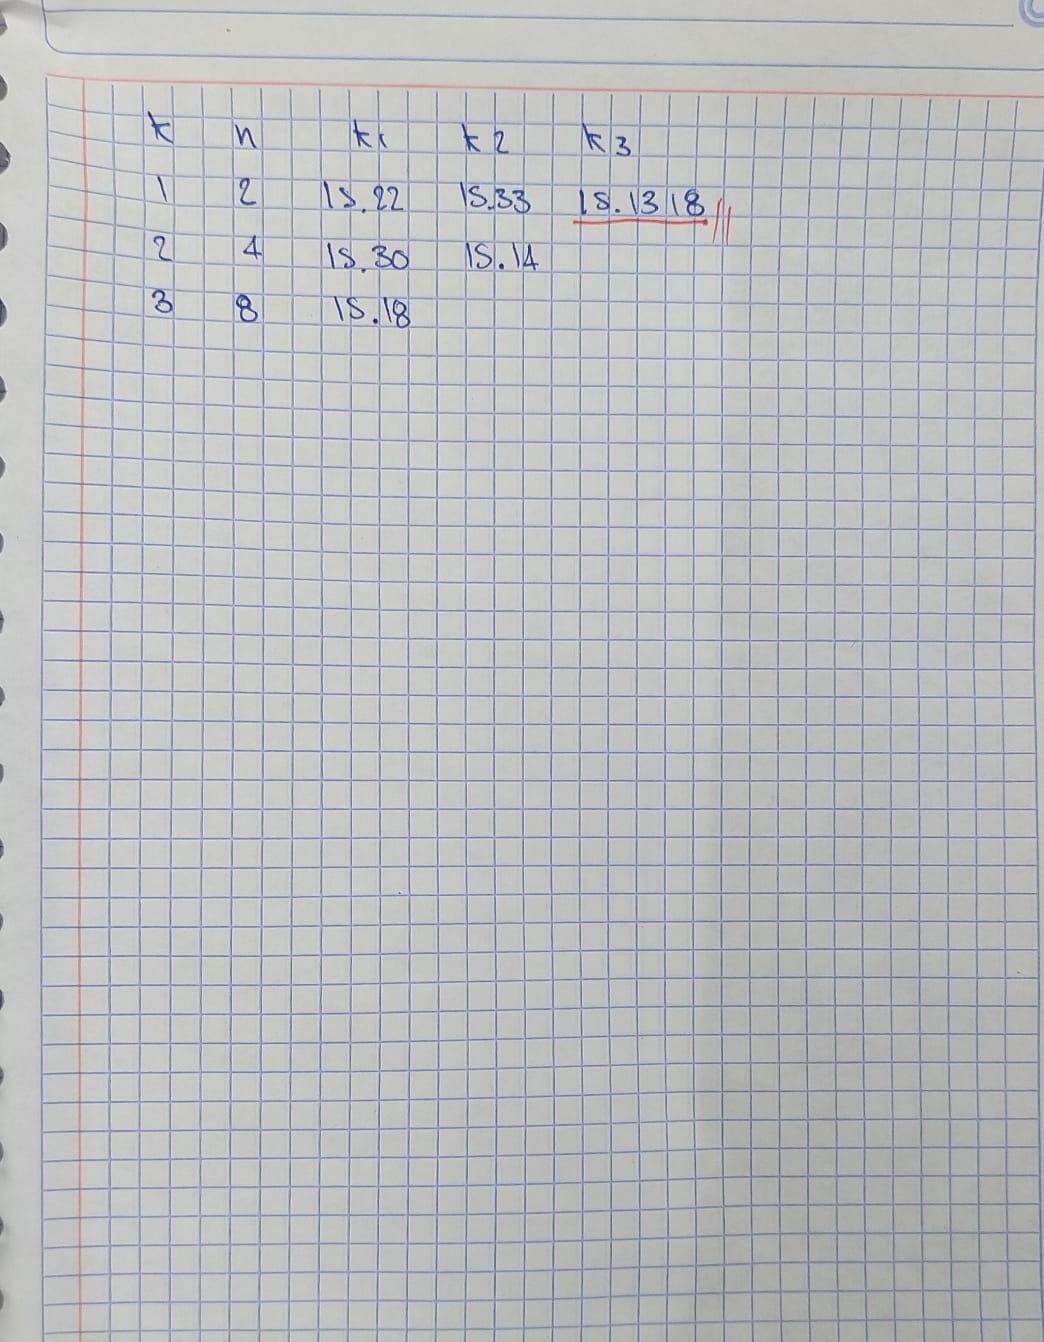 k n k1 k2 k3
1 2 15.22 15.33 15.1318
2 4 15.30 15.14
3 8 15.18